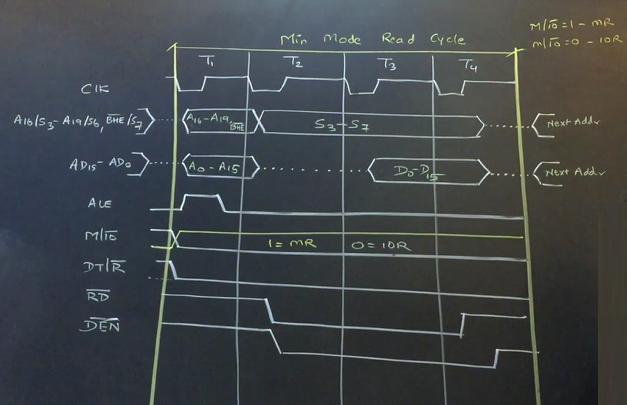 Min Mode Read Cycle
M/IO̅=1 - MR
M/IO̅=0 - IOR
T1 T2 T3 T4
CLK
A16/S3-A19/S6, B̅H̅E̅/S7 A16-A19, B̅H̅E̅ S3-S7 Next Addr
AD15-AD0 A0-A15 D0-D15 Next Addr
ALE
M/I̅O̅ 1=MR 0=IOR
DT/R̅
R̅D̅
D̅E̅N̅